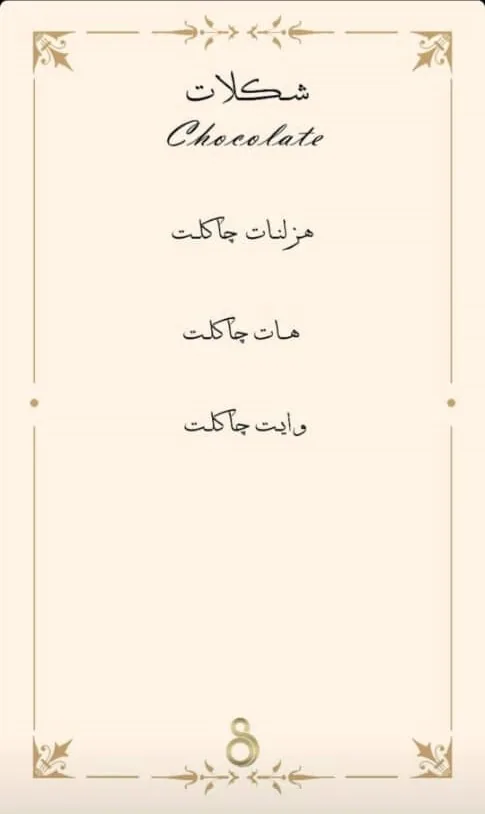 شکلات
Chocolate
هزلنات چاکلت
هات چاکلت
وایت چاکلت